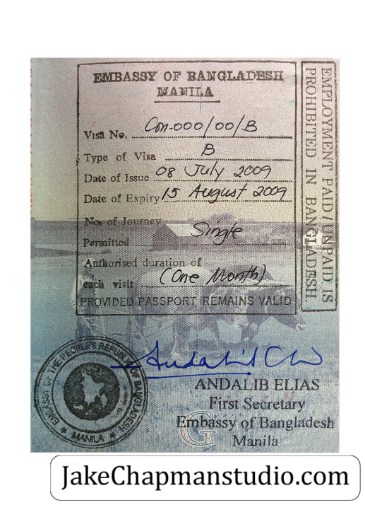 EMBASSY OF BANGLADESH
MANILA
Visa No. Con-000/00/B
Type of Visa B
Date of Issue 08 July 2009
Date of Expiry 15 August 2009
No. of Journey
Permitted Single
Authorised duration of
each visit (One Month)
PROVIDED PASSPORT REMAINS VALID
EMPLOYMENT PAID/UNPAID IS
PROHIBITED IN BANGLADESH
EMBASSY OF THE PEOPLE'S REPUBLIC OF BANGLADESH
MANILA
ANDALIB ELIAS
First Secretary
Embassy of Bangladesh
Manila
G
JakeChapmanstudio.com